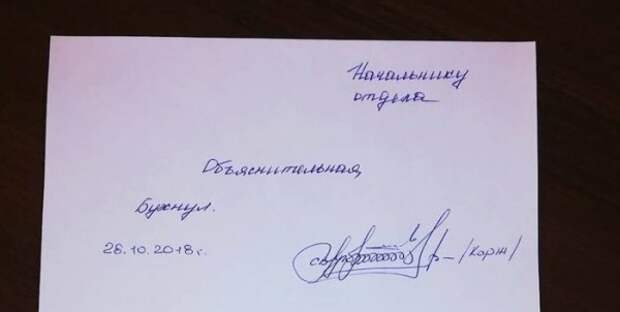 Начальнику
отдела
Объяснительная
Бухнул.
26.10.2018г. /Корж/